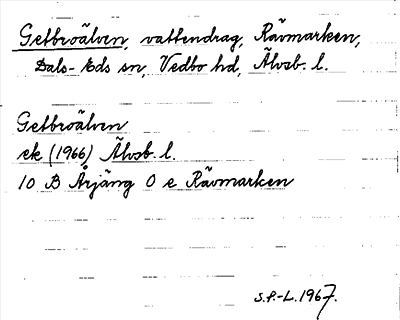 Getbroälven, vattendrag, Rävmarken,
Dals-Eds sn, Vedbo hd, Älvsb. l.
Getbroälven
ek (1966) Älvsb. l.
10 B Årjäng 0 e Rävmarken
S.F.-L. 1967.